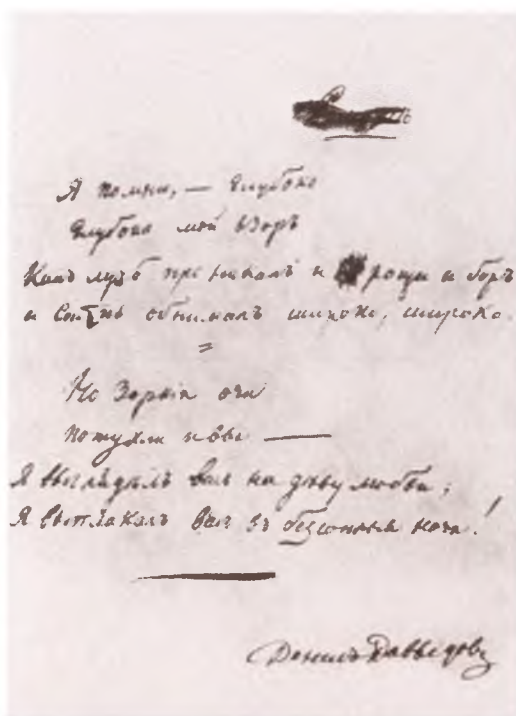 Я помню, — глубоко
Глубоко мой взоръ
Какъ лучъ проникалъ и рощи и боръ
и степь обнималъ широко, широко.
=
Но Зоркія очи
потухли и вы —
Я выглядѣлъ васъ на дѣву любви;
Я выплакалъ васъ въ безсонныя ночи!
Денисъ Давыдовъ